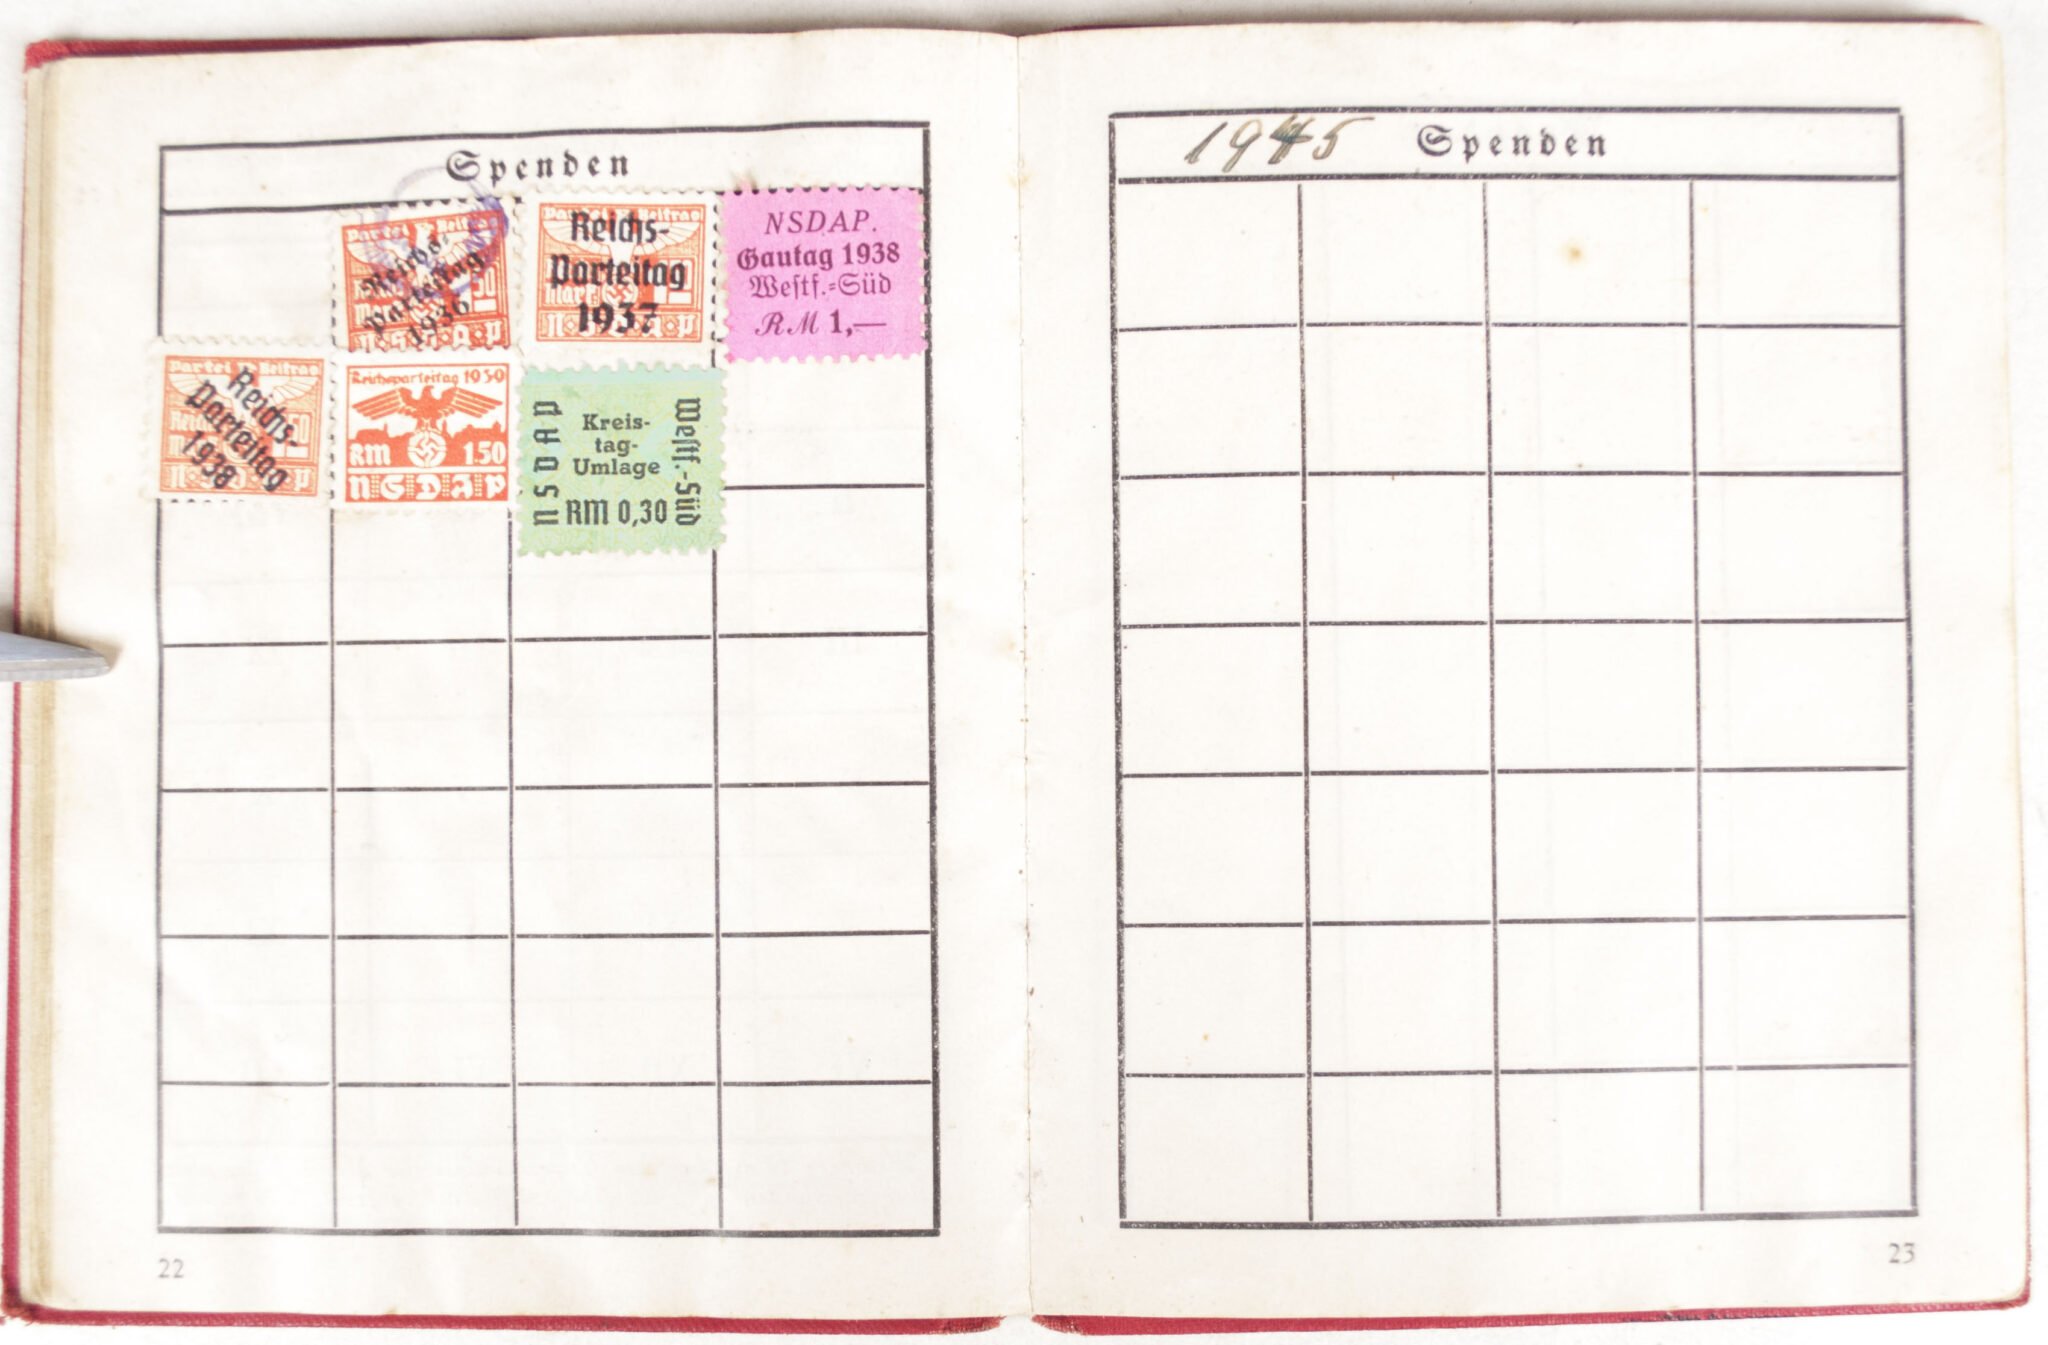 Spenden
Partei Beitrag
Reichs-
Parteitag
1936
50
N·S·D·A·P
Partei Beitrag
Reichs-
Parteitag
1937
Mark
N·S·D·A·P
NSDAP.
Gautag 1938
Westf.=Süd
RM 1,—
Partei Beitrag
Reichs-
Parteitag
1938
50
N·S·D·A·P
Reichsparteitag 1939
RM 1.50
NSDAP
NSDAP
Kreis-
tag-
Umlage
RM 0,30
Westf.-Süd
22
1945 Spenden
23